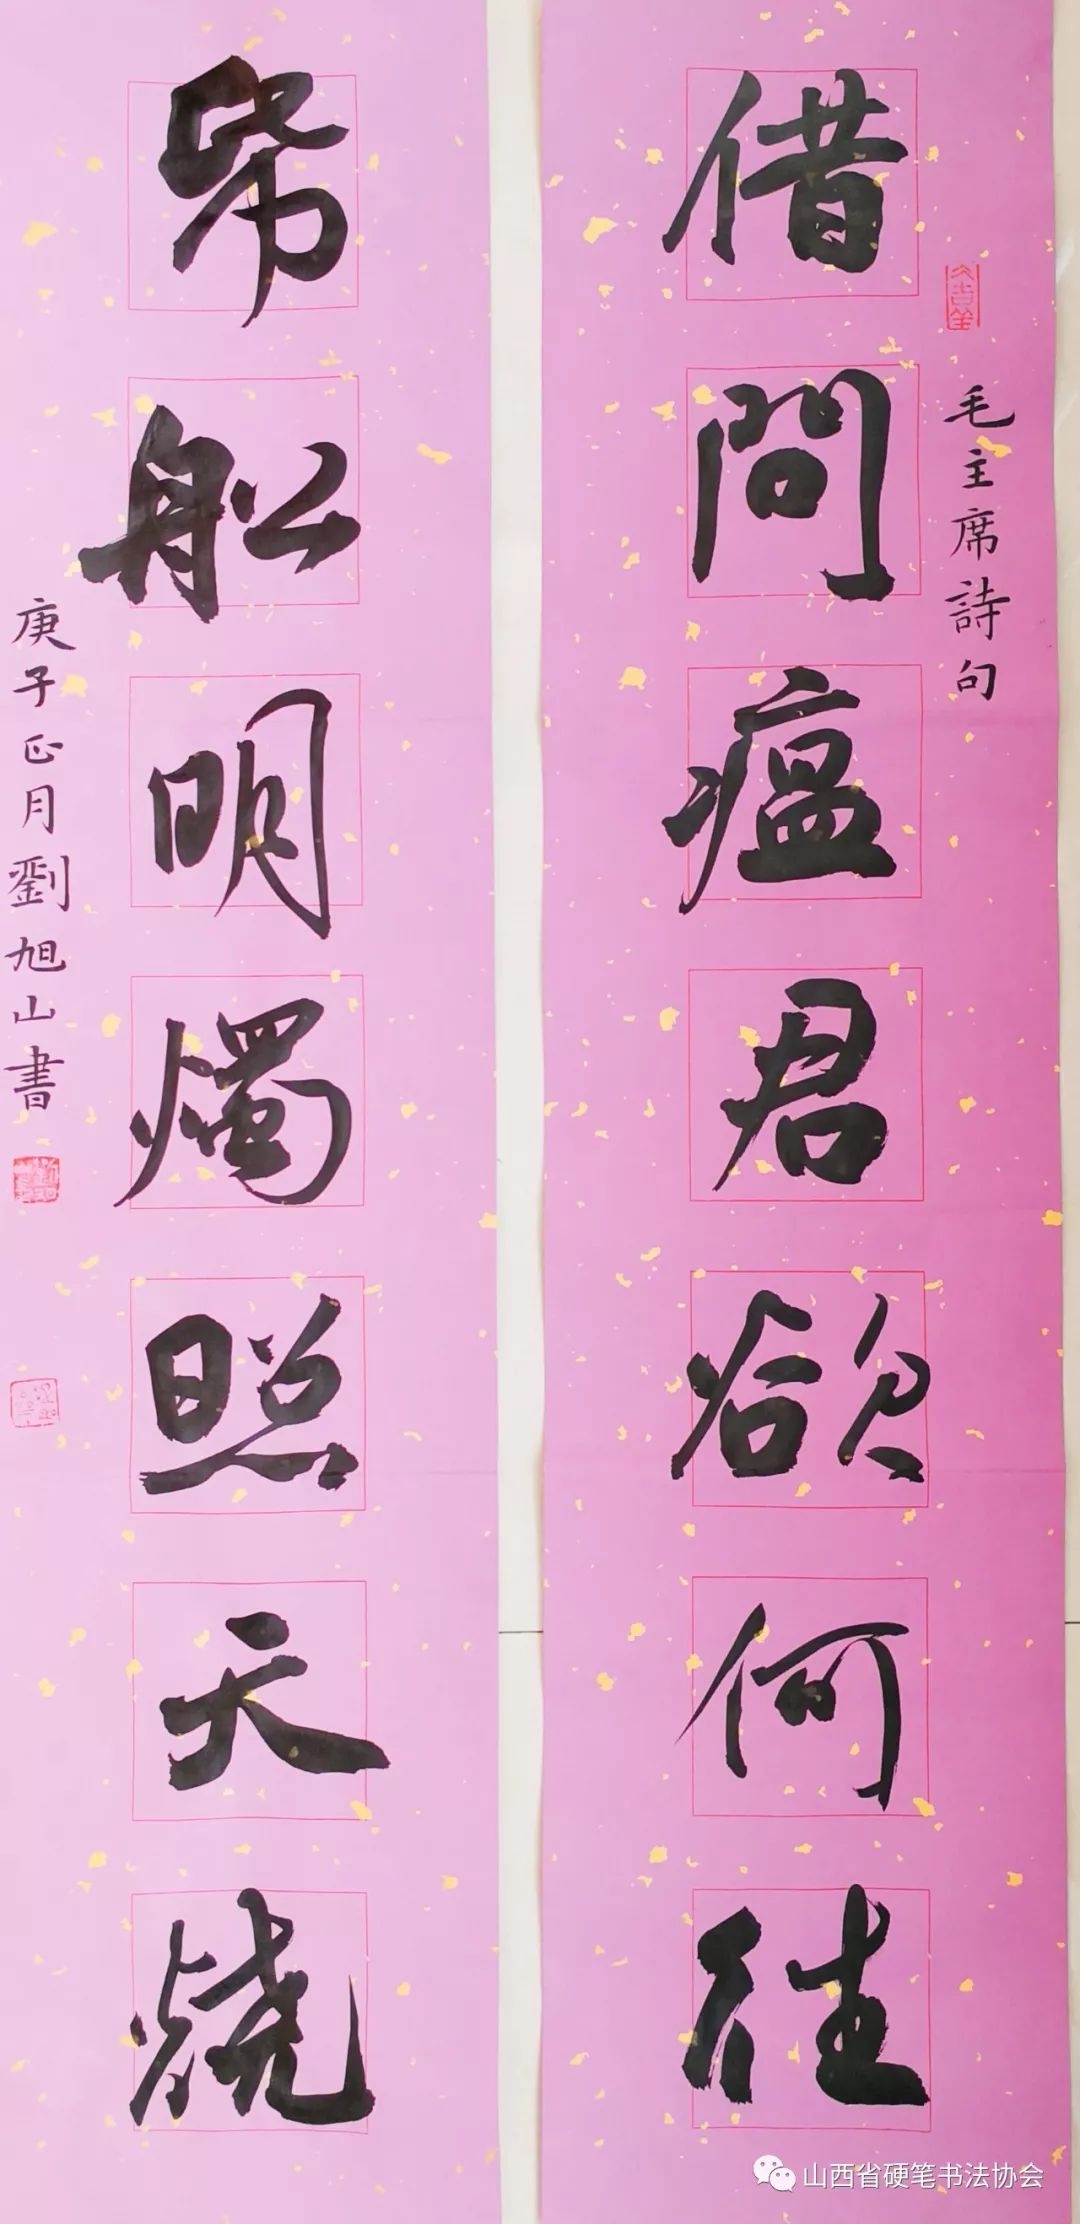 毛主席詩句
借問瘟君欲何往
帋船明燭照天燒
庚子正月劉旭山書
山西省硬笔书法协会